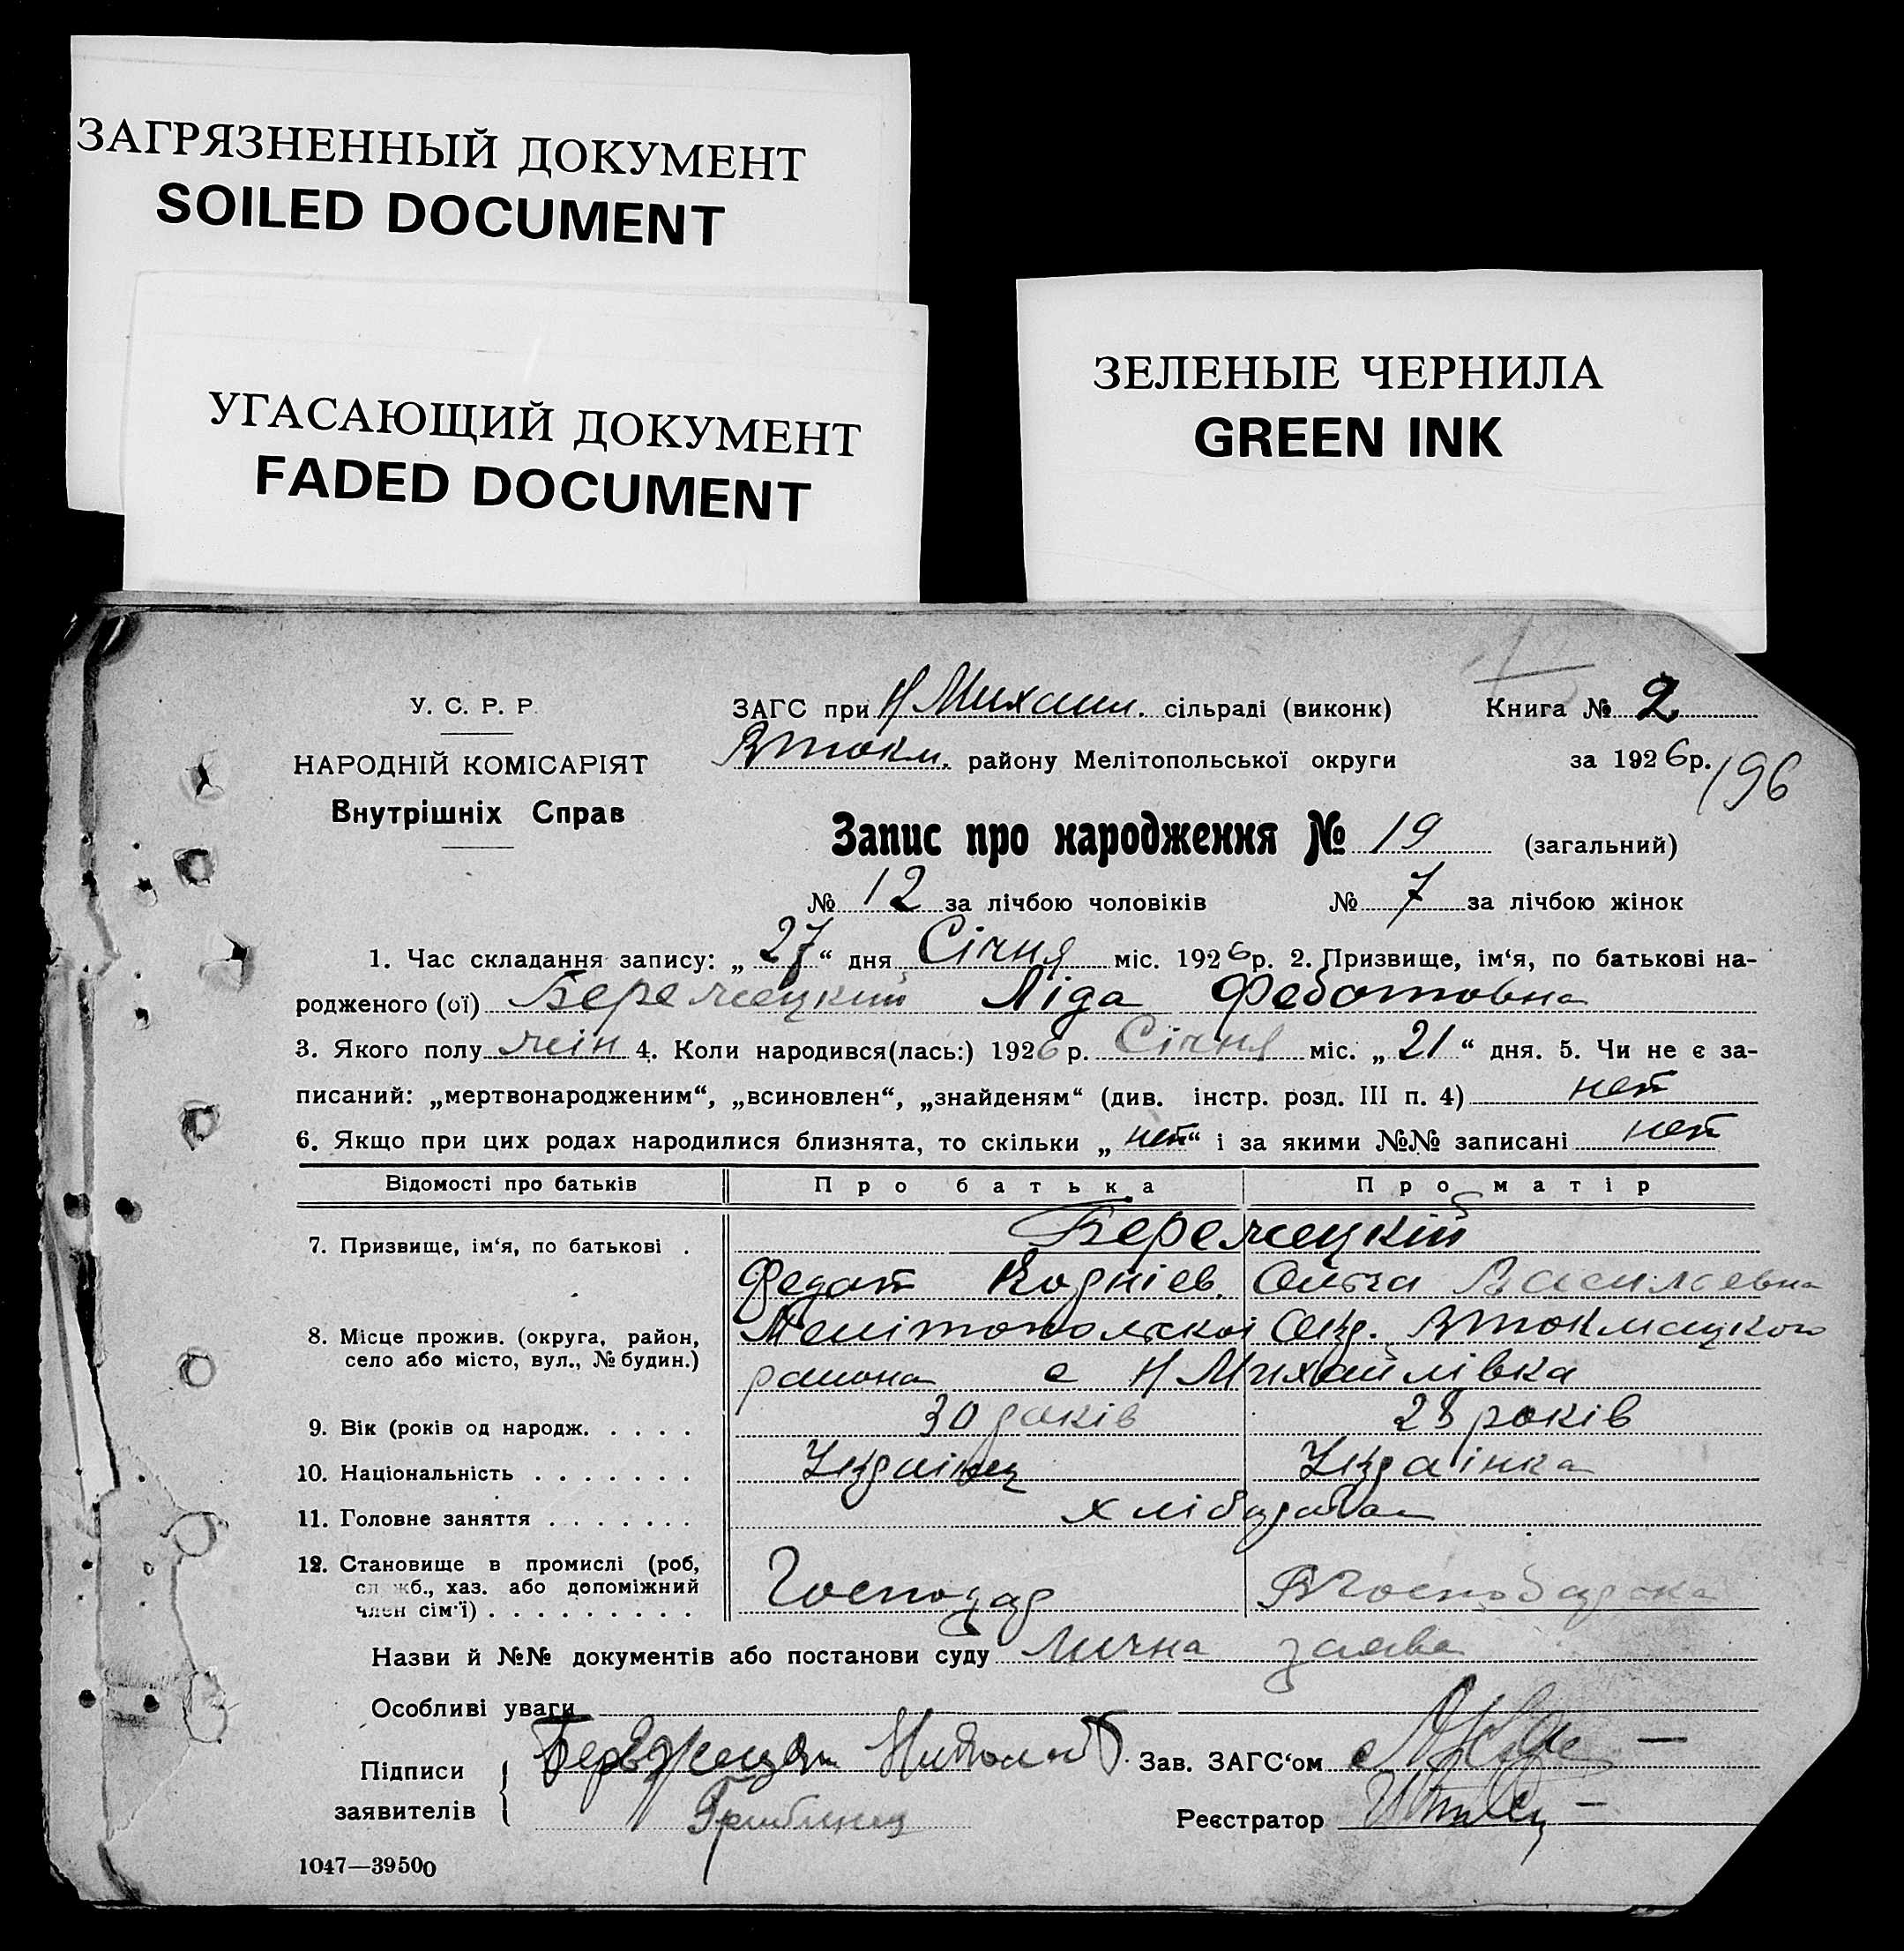 ЗАГРЯЗНЕННЫЙ ДОКУМЕНТ
SOILED DOCUMENT
УГАСАЮЩИЙ ДОКУМЕНТ
FADED DOCUMENT
ЗЕЛЕНЫЕ ЧЕРНИЛА
GREEN INK
У. С. Р. Р.
НАРОДНІЙ КОМІСАРІЯТ
Внутрішніх Справ
ЗАГС при Н Михаил. сільраді (виконк) Книга № 2
Втокм. району Мелітопольської округи за 1926р.
196
Запис про народження № 19 (загальний)
№ 12 за лічбою чоловіків № 7 за лічбою жінок
1. Час складання запису: „27“ дня Січня міс. 1926р. 2. Призвище, ім‘я, по батькові на-
родженого (ої) Бережецкий Ліда Федотовна
3. Якого полу жін 4. Коли народився(лась:) 1926р. Січня міс. „21“ дня. 5. Чи не є за-
писаний: „мертвонародженим“, „всиновлен“, „знайденям“ (див. інстр. розд. III п. 4) нет
6. Якщо при цих родах народилися близнята, то скільки „нет“ і за якими №№ записані нет
Відомості про батьків Про батька Про матір
7. Призвище, ім‘я, по батькові . Бережецкій
Федот Ольга Васильевна
8. Місце прожив. (округа, район, село або місто, вул., № будин.) Мелітопольскоі Окр. Втокмацкого
района с Н Михайлівка
9. Вік (років од народж. . . . . 30 років 28 років
10. Національність . . . . . . . Українец Українка
11. Головне заняття . . . . . . . хлібороб
12. Становище в промислі (роб,
служб., хаз. або допоміжний
член сім‘ї) . . . . . . . . . Господар Господарка
Назви й №№ документів або постанови суду лична заява
Особливі уваги
Підписи
заявителів
Зав. ЗАГС‘ом
Реєстратор
1047—39500